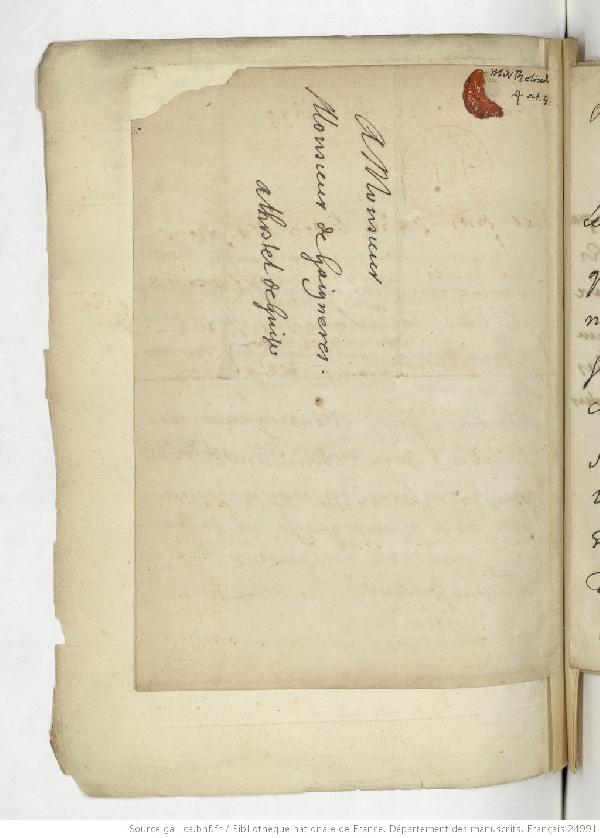 A Monsieur
Monsieur de Gaigneres.
a lhostel de Guise
4 oct.
Source gallica.bnf.fr / Bibliothèque nationale de France. Département des manuscrits. Français 24991